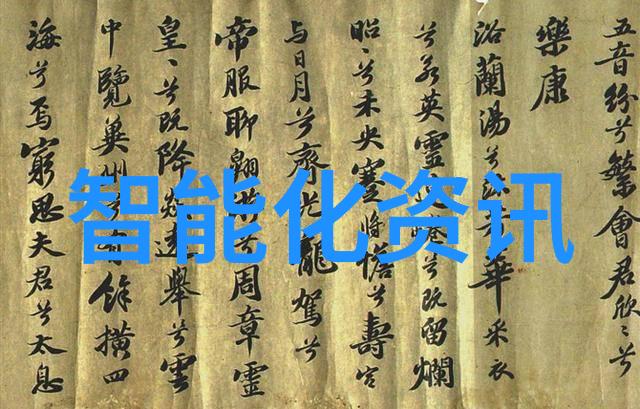 五音紛兮繁會君欣〻兮
樂康
浴蘭湯兮沐芳華采衣
兮若英靈蜷兮既留爛
昭〻兮未央蹇將憺兮壽宮
与日月兮齊光龍駕兮
帝服聊翱遊兮周章靈
皇〻兮既降猋遠舉兮雲
中覽冀州兮有餘橫四
海兮焉窮思夫君兮太息
智能化资讯